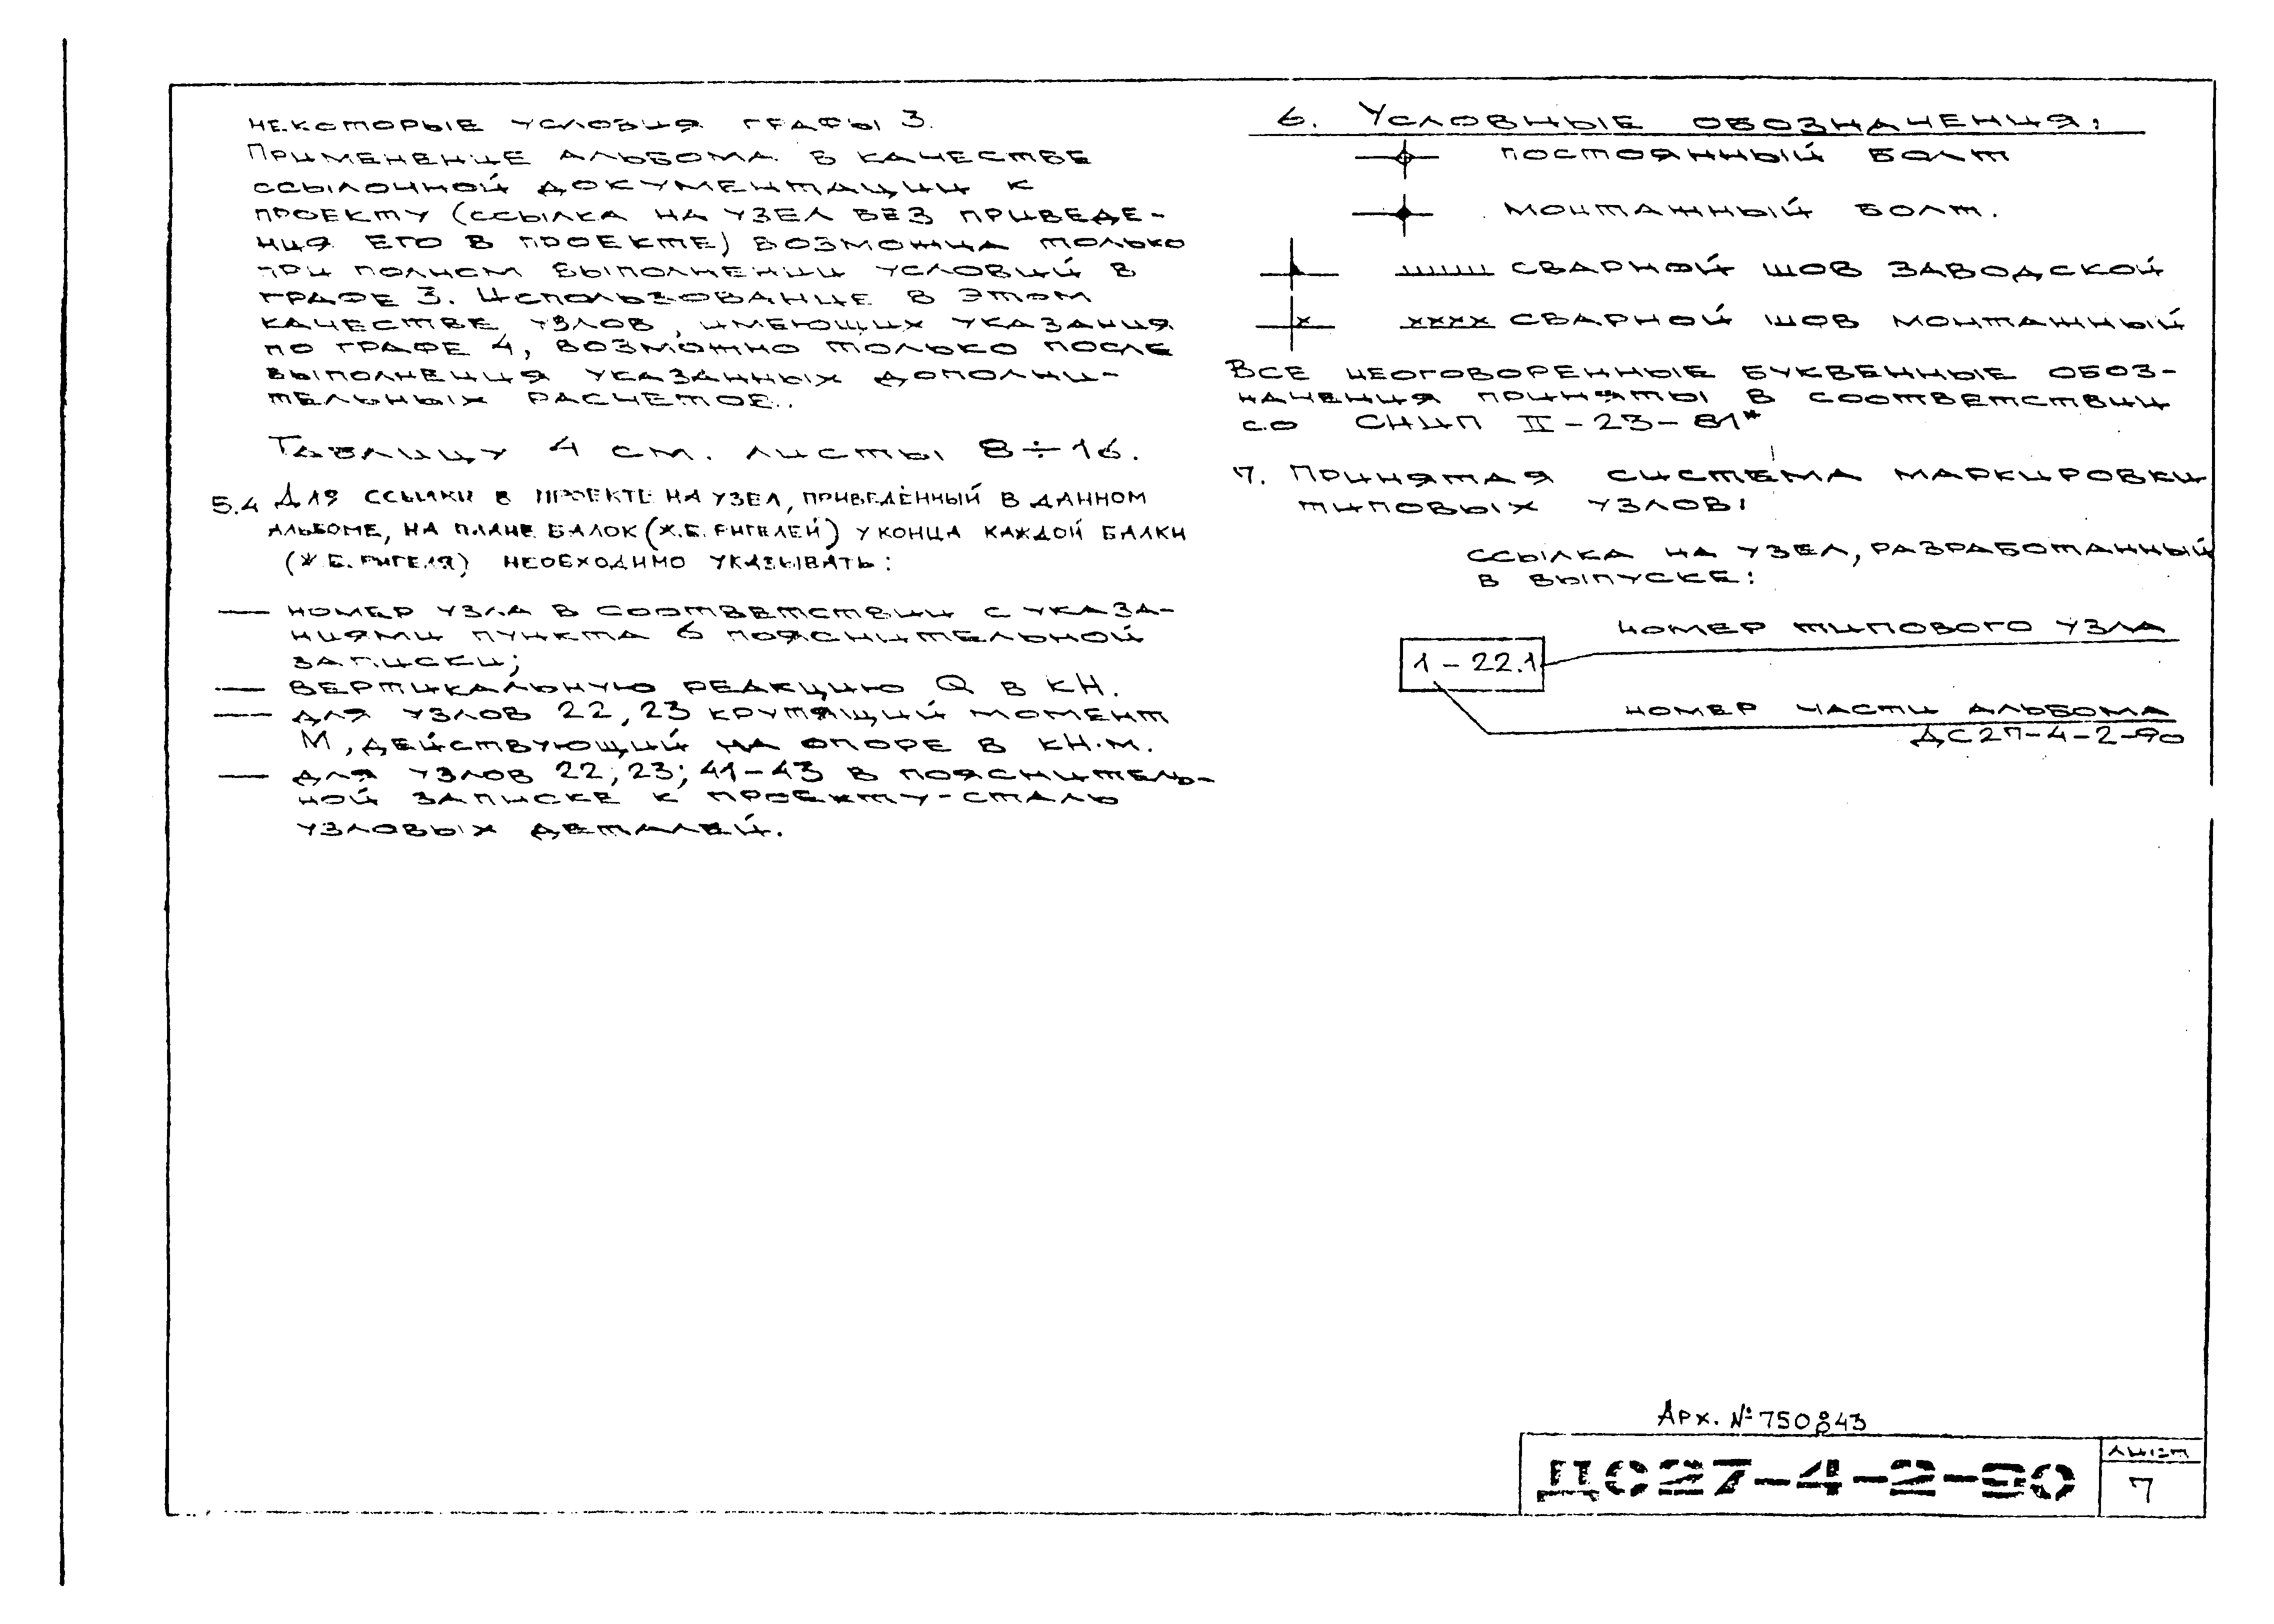 некоторые условия графы 3.
Применение альбома в качестве
ссылочной документации к
проекту (ссылка на узел без приведе-
ния его в проекте) возможна только
при полном выполнении условий в
графе 3. Использование в этом
качестве узлов, имеющих указания
по графе 4, возможно только после
выполнения указанных дополни-
тельных расчетов.
Таблицу 4 см. листы 8÷16.
5.4 Для ссылки в проекте на узел, приведённый в данном
альбоме, на плане балок (ж.б. ригелей) у конца каждой балки
(ж.б. ригеля) необходимо указывать:
— номер узла в соответствии с указа-
ниями пункта 6 пояснительной
записки;
— вертикальную реакцию Q в кН.
— для узлов 22, 23 крутящий момент
М, действующий на опоре в кН.м.
— для узлов 22; 23; 41-43 в поясните­ль-
ной записке к проекту-сталь
узловых деталей.
6. Условные обозначения:
постоянный болт
монтажный болт.
сварной шов заводской
хххх сварной шов монтажный
Все неоговоренные буквенные обоз-
начения приняты в соответствии
со СНиП II-23-81*
7. Принятая система маркировки
типовых узлов:
ссылка на узел, разработанный
в выпуске:
номер типового узла
1-22.1
номер части альбома
ДС27-4-2-90
Арх. № 750843
ДС27-4-2-90
лист
7